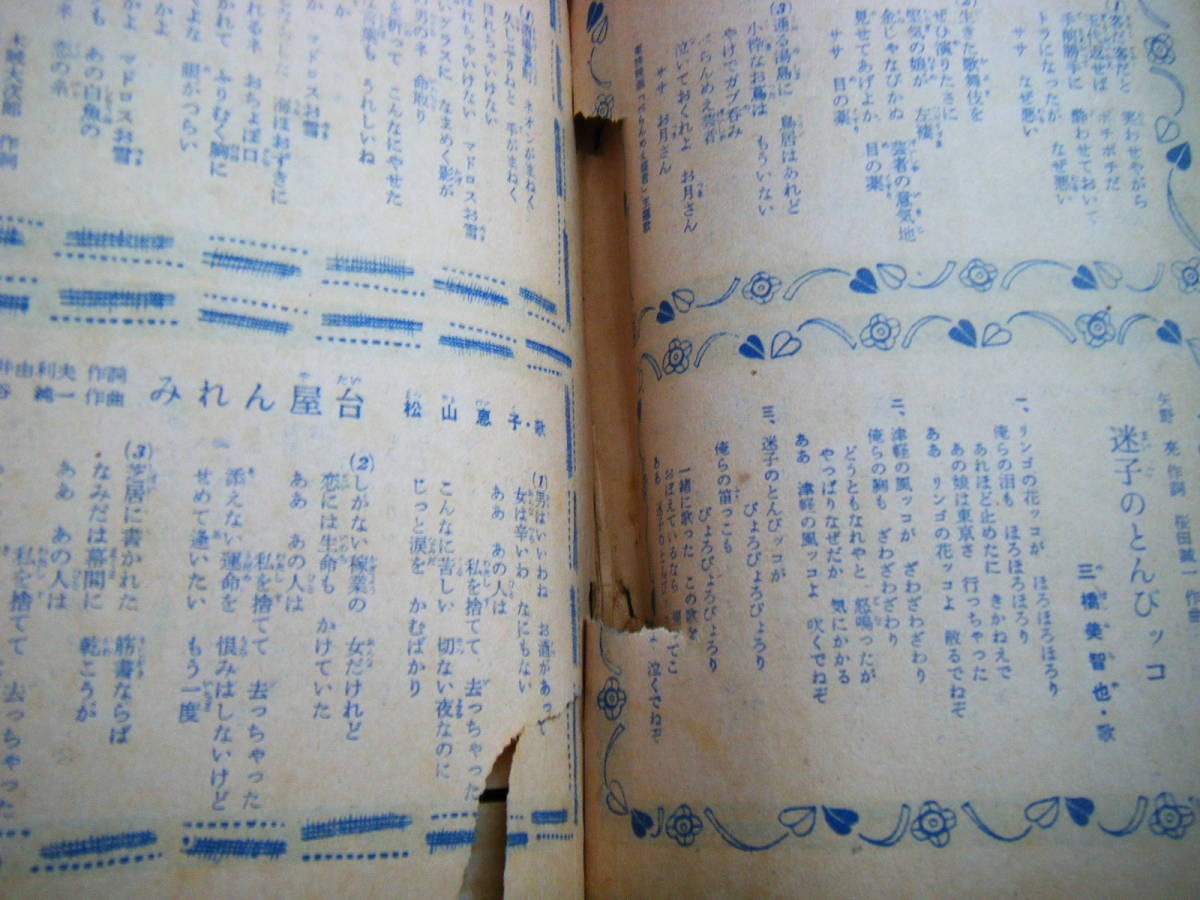 笑わせやがら
玉代返せば ポチポチだ
手前勝手に 酔わせておいて
トラになったが なぜ悪い
ササ なぜ悪い
生きた歌舞伎を
ぜひ演りたさに
堅気の娘が 左褄
金じゃなびかぬ 芸者の意気地
見せてあげよか 目の薬
ササ 目の薬
(3)通る湯島に 鳥居はあれど
小粋なお蔦は もういない
やけでガブ呑み
べらんめえ芸者
泣いておくれよ お月さん
サササ お月さん
矢野 亮 作詞 桜田誠一 作曲
迷子のとんびッコ
三橋美智也・歌
一、リンゴの花ッコが ほろほろほろり
俺らの泪も ほろほろほろり
あれほど止めたに きかねえで
あの娘は東京さ 行っちゃった
ああ リンゴの花ッコよ 散るでねぞ
二、津軽の風ッコが ざわざわざわり
俺らの胸も ざわざわざわり
どうともなれやと 怒鳴ったが
やっぱりなぜだか 気にかかる
ああ 津軽の風ッコよ 吹くでねぞ
三、迷子のとんびッコが
ぴょろぴょろぴょろり
俺らの笛っこも
ぴょろぴょろぴょろり
一緒に歌った この歌を
おぼえているなら
ああ 泣くでねぞ
ネオンがまねく
久しぶりねと 手がまねく
ほれちゃいけない
ほれちゃいけない マドロスお雪
グラスに なまめく影が
男のネ 命取り
を祈って こんなにやせた
言葉も うれしいね
マドロスお雪
海ほおずきに
おちょぼ口
ふりむく胸に
よな 眼がつらい
マドロスお雪
あの白魚の
恋の糸
大次郎 作詞
井由利夫 作詞
谷純一 作曲
みれん屋台
松山恵子・歌
(1)男はいいわね お酒があって
女は辛いわ なにもない
ああ あの人は
私を捨てて 去っちゃった
こんなに苦しい 切ない夜なのに
じっと涙を かむばかり
(2)しがない稼業の 女だけれど
恋には生命も かけていた
ああ あの人は
私を捨てて 去っちゃった
添えない運命を 恨みはしないけど
せめて逢いたい もう一度
(3)芝居に書かれた 筋書ならば
なみだは幕間に 乾こうが
ああ あの人は
私を捨てて 去っちゃった